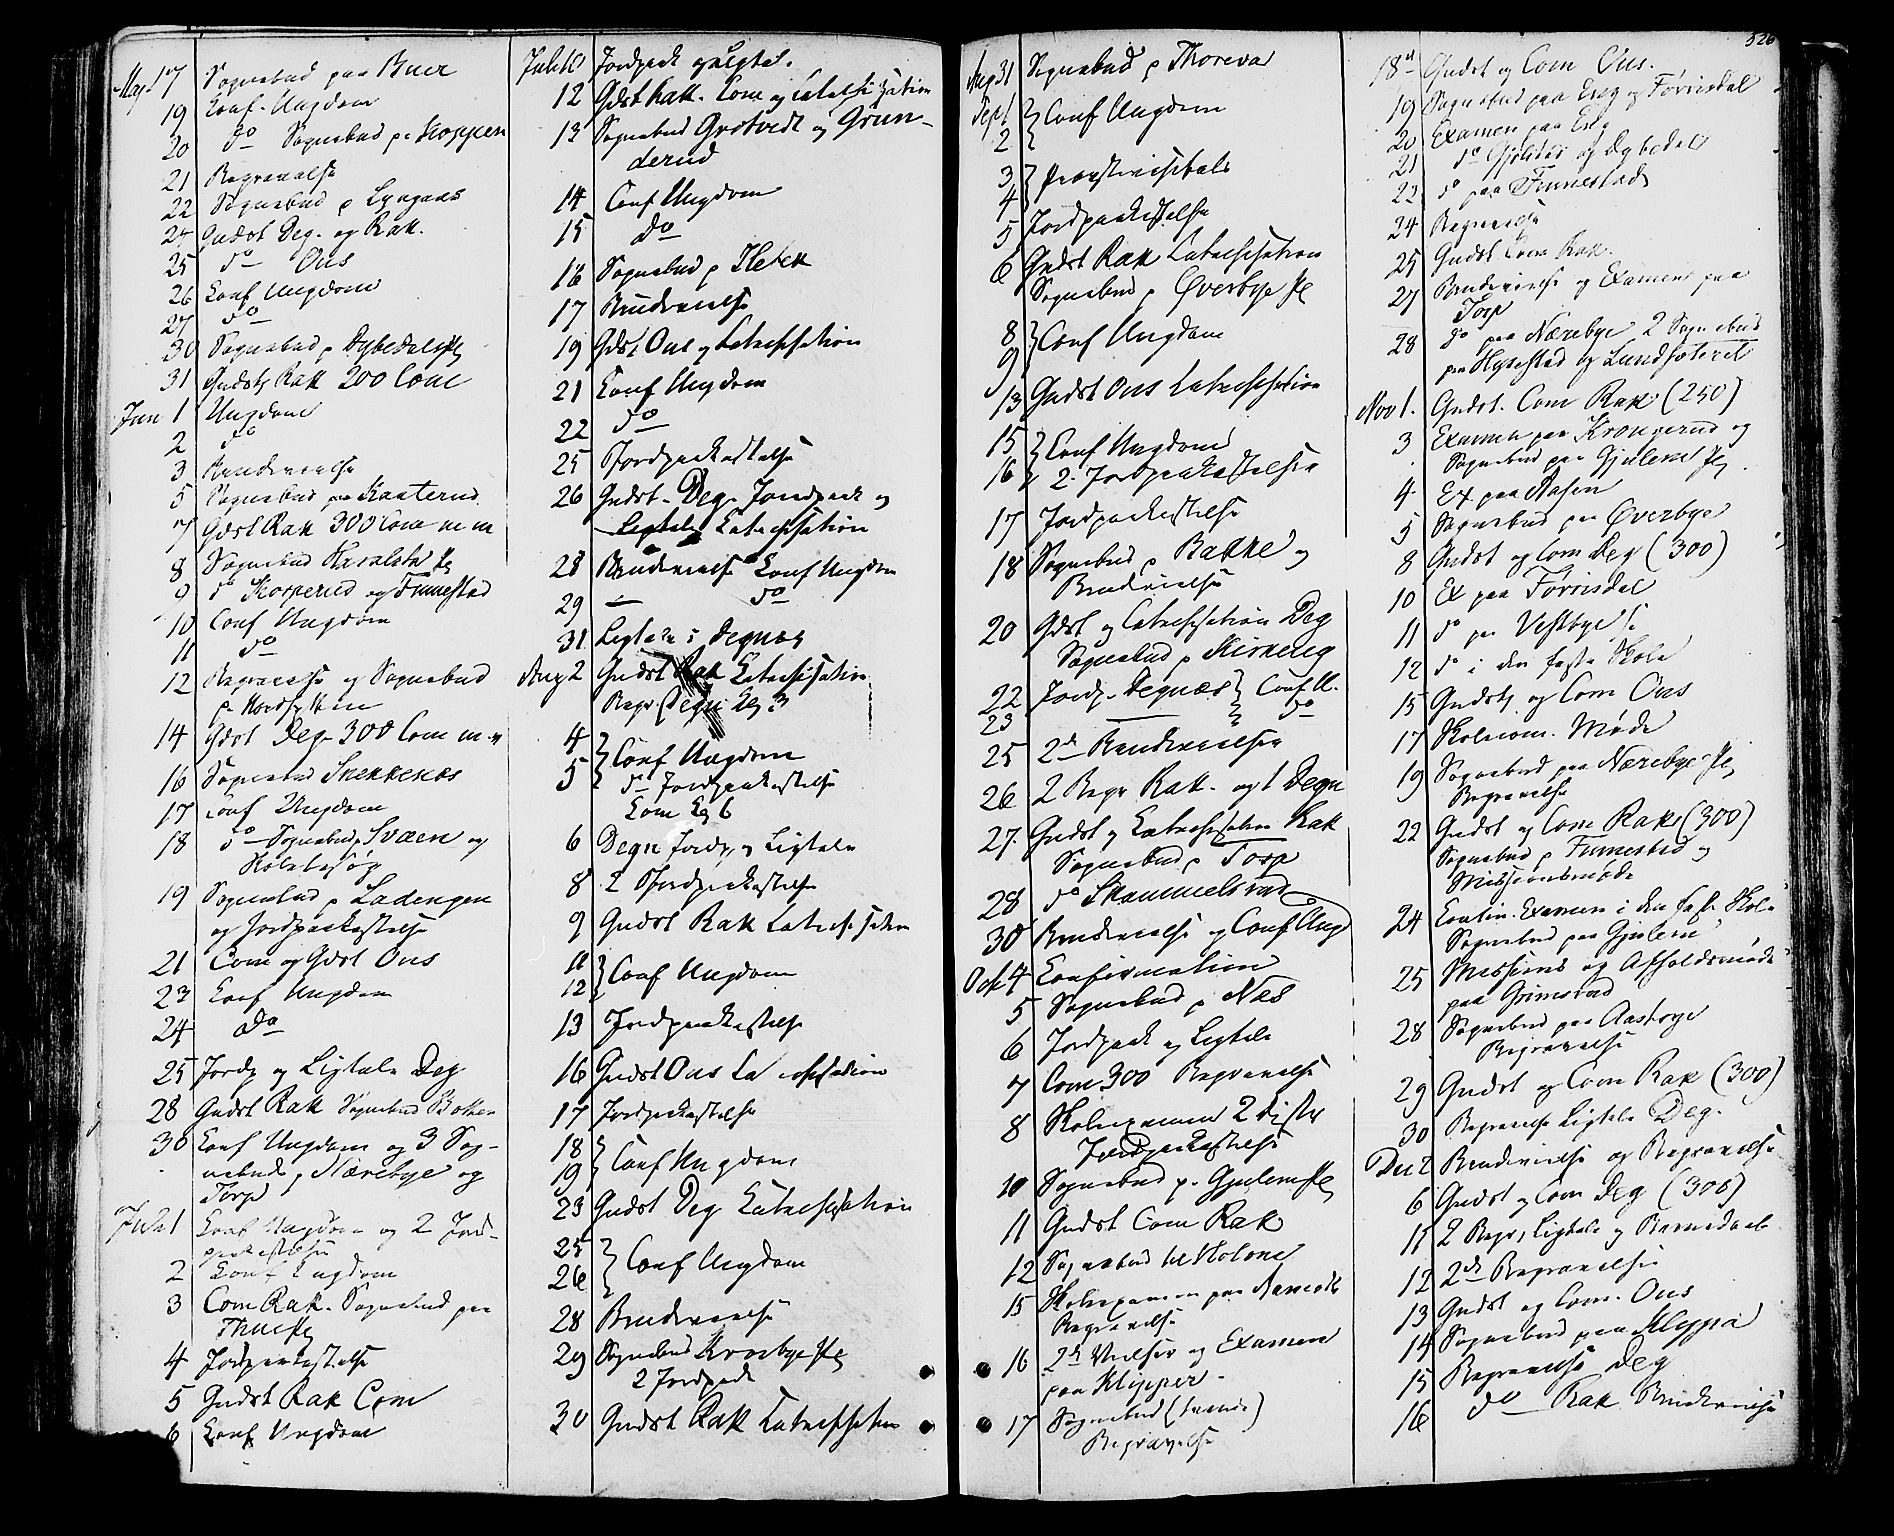 Maj 17 Sognebud paa Buer
19 Conf. Ungdom
20 do Sognebud pa Kopperu
21 Begravelse
22 Sognebud p Lyngaas
24 Gudst Deg. og Rak.
25 do Ons
26 Conf Ungdom
27 do
30 Sognebud p Dybedal
31 Gudst Rak 200 Com
Jun 1 Ungdom
2 do
3 Brudevielse
5 Sognebud paa Kaaterud
7 Gdst Rak 300 Com m m
8 Sognebud
9 do Kopperud og Finnestad
10 Conf Ungdom
11 do
12 Begravelse og Sognebud
p.
14 Gdst Deg 300 Com m m
16 Sognebud Snekkenæs
17 Conf Ungdom
18 do Sognebud Svaen og
Kolabesøg
19 Sognebud p Ladengen
og Jordpaakastelse
21 Com og Gdst Ons
23 Conf Ungdom
24 do
25 Jordp og Ligtale Deg
28 Gudst Rak Sognebud
30 Conf Ungdom og 3 Sog-
nebud p Nærebye og
Torp
Juli 1 Conf Ungdom og 2 Jord-
paakastelse
2 Conf Ungdom
3 Com Rak. Sognebud paa
4 Jordpaakastelse
5 Gudst Rak Com
6 Conf Ungdom
Juli 10 Jordpaak og Ligtal.
12 Gdst Rak. Com og Catechisation
13 Sognebud Grotvedt og Grun-
derud
14 Conf Ungdom
15 do
16 Sognebud p
17 Brudevielse
19 Gdst Ons og Catechisation
21 Conf Ungdom
22 do
25 Jordpaakastelse
26 Gudst. Deg. Jordpaak og
Ligtale Catechisation
28 Brudevielse Conf Ungdom
29 — do
31 Ligtale i Degnæs
Aug 2 Gudst Rak Catechisation
Begr Degn
4 } Conf Ungdom
5 do Jordpaakastelse
Com Eg 6
6 Degn Jordp. og Ligtale
8 2 Jordpaakastelse
9 Gudst Rak Catechisation
11 } Conf Ungdom
12
13 Jordpaakastelse
16 Gudst Ons Catechisation
17 Jordpaakastelse
18 } Conf Ungdom
19
23 Gudst Deg Catechisation
25 } Conf Ungdom
26
28 Brudevielse
29 Sognebud Krosbye
2 Jordpaak
30 Gudst Rak Catechisation
Aug 31 Sognebud p Thorerød
Sept 1 } Conf Ungdom
2
3 } Provstevisitats
4
5 Jordpaakastelse
6 Gudst Rak Catechisation
Sognebud p Øverbye
8 } Conf Ungdom
9
13 Gudst Ons Catechisation
15 } Conf Ungdom
16 2 Jordpaakastelser
17 Jordpaakastelse
18 Sognebud p Bakke og
Brudevielse
20 Gdst og Catechisation Deg
Sognebud p Kirkeng
22 Jordp. Degnæs } Conf U.
23 — do
25 2de Brudevielser
26 2 Begr Rak. og 1 Degn
27. Gudst og Catechisation Rak
Sognebud p Torp
28 do Skammelsrød
30 Brudevielse og Conf Ung
Oct 4 Confirmation
5 Sognebud p Næs
6 Jordpaak og Ligtale
7 Com 300 Begravelse
8 Skoleexamen 2 Distr
Jordpaakastelse
10 Sognebud p. Gjulem
11 Gudst Com Rak
12 Sognebud til
15 Skoleexamen paa
Begravelse
16 2de Vielser og Examen
paa Klypper
17 Sognebud (tvende)
Begravelse
526
18 Gudst og Com Ons.
19 Sognebud paa Eng og Førrisdal
20 Examen paa Eng
21 do Gjølstad og Dybedal
22 do paa Finnestad
24 Begravelse
25 Gudst Com Rak.
27 Brudevielse og Examen paa
Torp
28 do paa Nærebye 2 Sognebud
paa og Lundsæteret
Nov 1. Gudst. Com Rak (250)
3 Examen paa Krongerud og
Sognebud paa Gjulem
4. Ex paa Aasen
5 Sognebud paa Øverbye
8 Gudst og Com Deg (300)
10 Ex paa Førrisdal
11 do paa Vestbye
12 do i den faste Skole
15 Gudst og Com Ons
17 Skolecom. Møde
19 Sognebud paa Nærebye
Begravelse
22 Gudst og Com Rak (300)
Sognebud p Finnestad og
Missionsmøde
24 Contin. Examen i den faste Skole
Sognebud paa Gjulem
25 Missions og Afholdsmøde
paa Grimsrød
28 Sognebud paa Aasbye
Begravelse
29 Gudst og Com Rak (300)
30 Begravelse Ligtale Deg.
Dec 2 Brudevielse og Begravelse
6 Gudst og Com Deg (300)
11 2 Begr, Ligtale og Barnedaab
12 2de Begravelser
13 Gudst og Com. Ons
14 Sognebud paa Kleppa
15 Begravelse Deg
16 do Rak Brudevielse